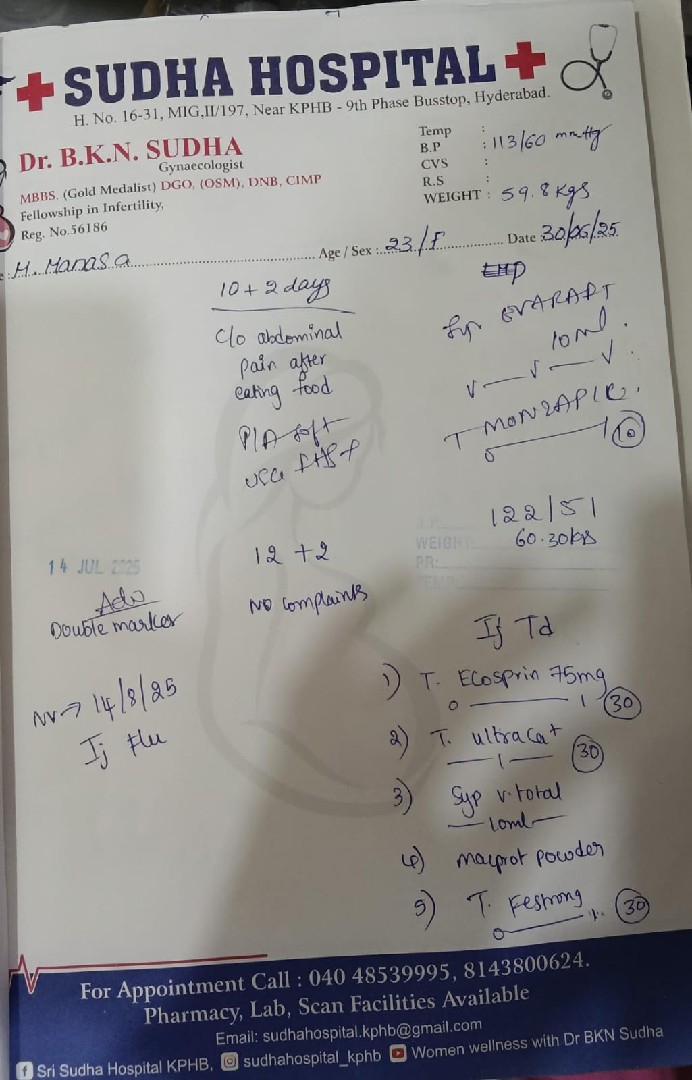 SUDHA HOSPITAL
H. No. 16-31, MIG,II/197, Near KPHB - 9th Phase Busstop, Hyderabad.
Dr. B.K.N. SUDHA
Gynaecologist
MBBS. (Gold Medalist) DGO, (OSM), DNB, CIMP
Fellowship in Infertility,
Reg. No.56186
Temp :
B.P : 113/60 mmHg
CVS :
R.S :
WEIGHT : 59.8 Kgs
M. Manasa Age / Sex : 23/F Date 30/06/25
10 + 2 days
C/o abdominal
pain after
eating food
P/A soft
USG
Syp
10ml.
T
10
122/51
60.30kgs
WEIGH
PR:
14 JUL 2025
12 + 2
Adv
Double marker
No complaints
NV → 14/8/25
Ij Flu
Ij Td
1) T. Ecosprin 75mg
0 1 30
2) T. ultracat
1 30
3) Syp v. total
10ml
4) macprot powder
5) T. Festrong
0 1. 30
For Appointment Call : 040 48539995, 8143800624.
Pharmacy, Lab, Scan Facilities Available
Email: sudhahospital.kphb@gmail.com
Sri Sudha Hospital KPHB, sudhahospital_kphb Women wellness with Dr BKN Sudha